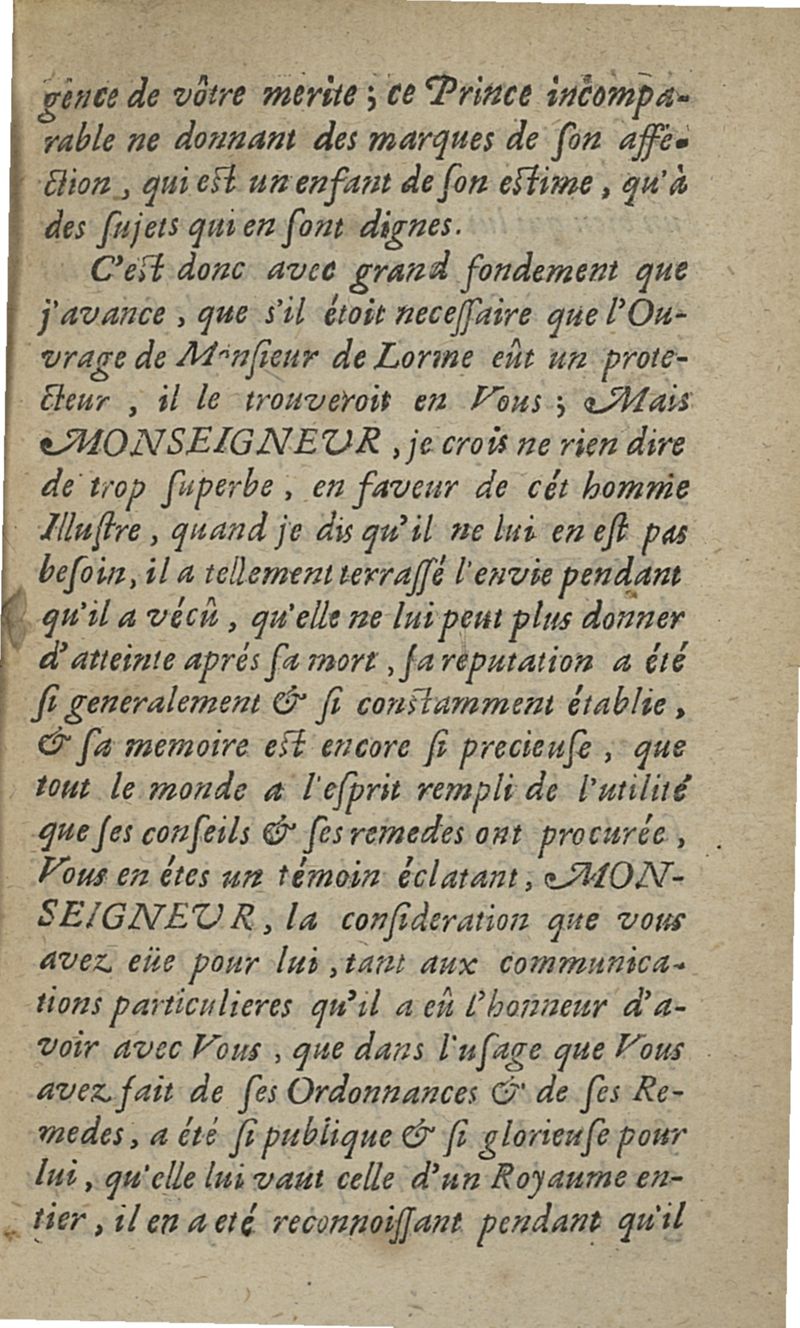 gence de vôtre merite ; ce Prince incompa-
rable ne donnant des marques de ſon affe-
ction, qui est un enfant de ſon estime, qu'à
des ſujets qui en ſont dignes.
C'est donc avec grand fondement que
j'avance, que s'il étoit neceſſaire que l'Ou-
vrage de Monſieur de Lorme eût un prote-
cteur, il le trouveroit en Vous ; Mais
MONSEIGNEVR, je crois ne rien dire
de trop ſuperbe, en faveur de cét homme
Illuſtre, quand je dis qu'il ne lui en eſt pas
beſoin, il a tellement terraſſé l'envie pendant
qu'il a vécû, qu'elle ne lui peut plus donner
d'atteinte aprés ſa mort, ſa reputation a été
ſi generalement & ſi constamment établie,
& ſa memoire est encore ſi precieuſe, que
tout le monde a l'eſprit rempli de l'utilité
que ſes conſeils & ſes remedes ont procurée,
Vous en étes un témoin éclatant, MON-
SEIGNEVR, la conſideration que vous
avez eüe pour lui, tant aux communica-
tions particulieres qu'il a eû l'honneur d'a-
voir avec Vous, que dans l'uſage que Vous
avez fait de ſes Ordonnances & de ſes Re-
medes, a été ſi publique & ſi glorieuſe pour
lui, qu'elle lui vaut celle d'un Royaume en-
tier, il en a eté reconnoiſſant pendant qu'il